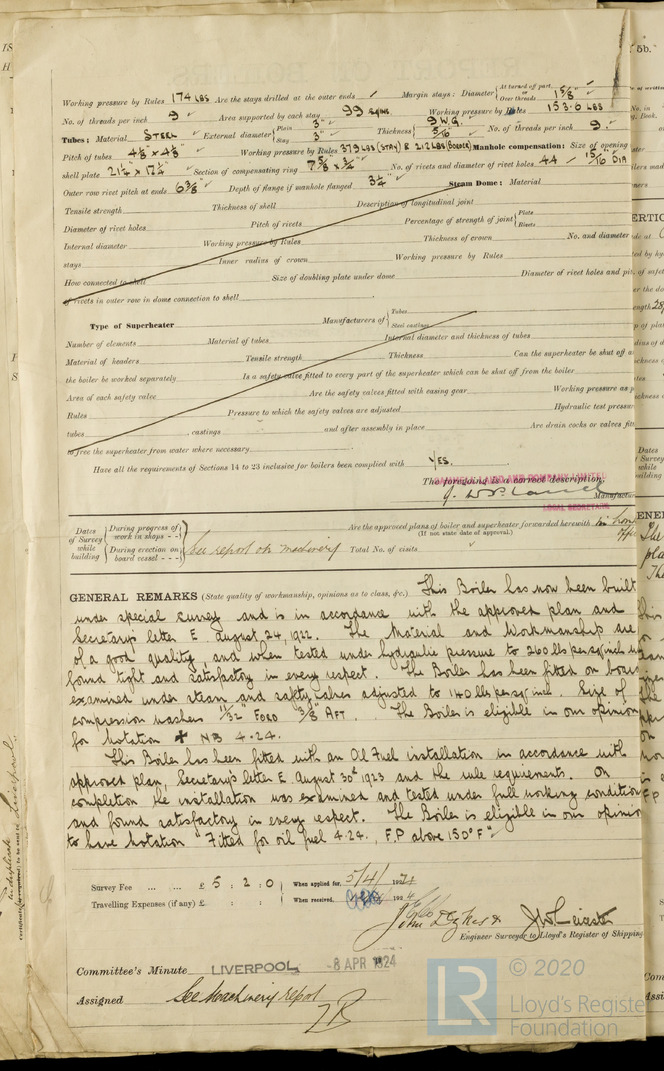 Working pressure by Rules 174 LBS Are the stays drilled at the outer ends Margin stays: Diameter { At turned off part, or Over threads 1 5/8"
No. of threads per inch 9 Area supported by each stay 99 sqins Working pressure by Rules 153.6 LBS
Tubes: Material STEEL External diameter { Plain 3" Stay 3" Thickness { 9 W.G. 5/16" No. of threads per inch 9.
Pitch of tubes 4 1/8" x 4 1/8" Working pressure by Rules 379 LBS (STAY) & 212 LBS Manhole compensation: Size of opening
shell plate 21 1/4" x 17 1/4" Section of compensating ring 7 5/8" x 3/4" No. of rivets and diameter of rivet holes 44 - 15/16" DIA
Outer row rivet pitch at ends 6 3/8" Depth of flange if manhole flanged 3 1/4" Steam Dome: Material
Tensile strength Thickness of shell Description of longitudinal joint
Diameter of rivet holes Pitch of rivets Percentage of strength of joint { Plate Rivets
Internal diameter Working pressure by Rules Thickness of crown No. and diameter
stays Inner radius of crown Working pressure by Rules
How connected to shell Size of doubling plate under dome Diameter of rivet holes and pit
of rivets in outer row in dome connection to shell
Type of Superheater Manufacturers of { Tubes Steel castings
Number of elements Material of tubes Internal diameter and thickness of tubes
Material of headers Tensile strength Thickness Can the superheater be shut off a
the boiler be worked separately Is a safety valve fitted to every part of the superheater which can be shut off from the boiler
Area of each safety valve Are the safety valves fitted with easing gear Working pressure as p
Rules Pressure to which the safety valves are adjusted Hydraulic test pressu
tubes , castings and after assembly in place Are drain cocks or valves fitt
to free the superheater from water where necessary
Have all the requirements of Sections 14 to 23 inclusive for boilers been complied with YES.
The foregoing is a correct description,
Manufactur
LOCAL SECRETARY
Dates of Survey while building { During progress of work in shops - - During erection on board vessel - - - } See report on machinery
Are the approved plans of boiler and superheater forwarded herewith
(If not state date of approval.)
Total No. of visits
GENERAL REMARKS (State quality of workmanship, opinions as to class, &c.) This Boiler has now been built
under special survey and is in accordance with the approved plan and
Secretary's letter E August 24, 1922. The Material and Workmanship are
of a good quality, and when tested under hydraulic pressure to 260 lbs per sq inch was
found tight and satisfactory in every respect. The Boiler has been fitted on board
examined under steam and safety valves adjusted to 140 lbs per sq inch. Size of
compression washers 11/32" FORD 3/8" AFT. The Boiler is eligible in our opinion
for Notation + NB 4.24.
This Boiler has been fitted with an Oil Fuel installation in accordance with
approved plan, Secretary's letter E August 30th 1923 and the rule requirements. On
completion the installation was examined and tested under full working conditions
and found satisfactory in every respect. The Boiler is eligible in our opinion
to have Notation "Fitted for oil fuel 4.24, F.P above 150° F"
Survey Fee ... ... £ 5 : 2 : 0 When applied for, 5/4/ 1924
Travelling Expenses (if any) £ : : When received, 192
John Dykes & JW Leicester
Engineer Surveyor to Lloyd's Register of Shipping
Committee's Minute LIVERPOOL -8 APR 1924
Assigned See Machinery report
© 2020
LR Lloyd's Registe
Foundation